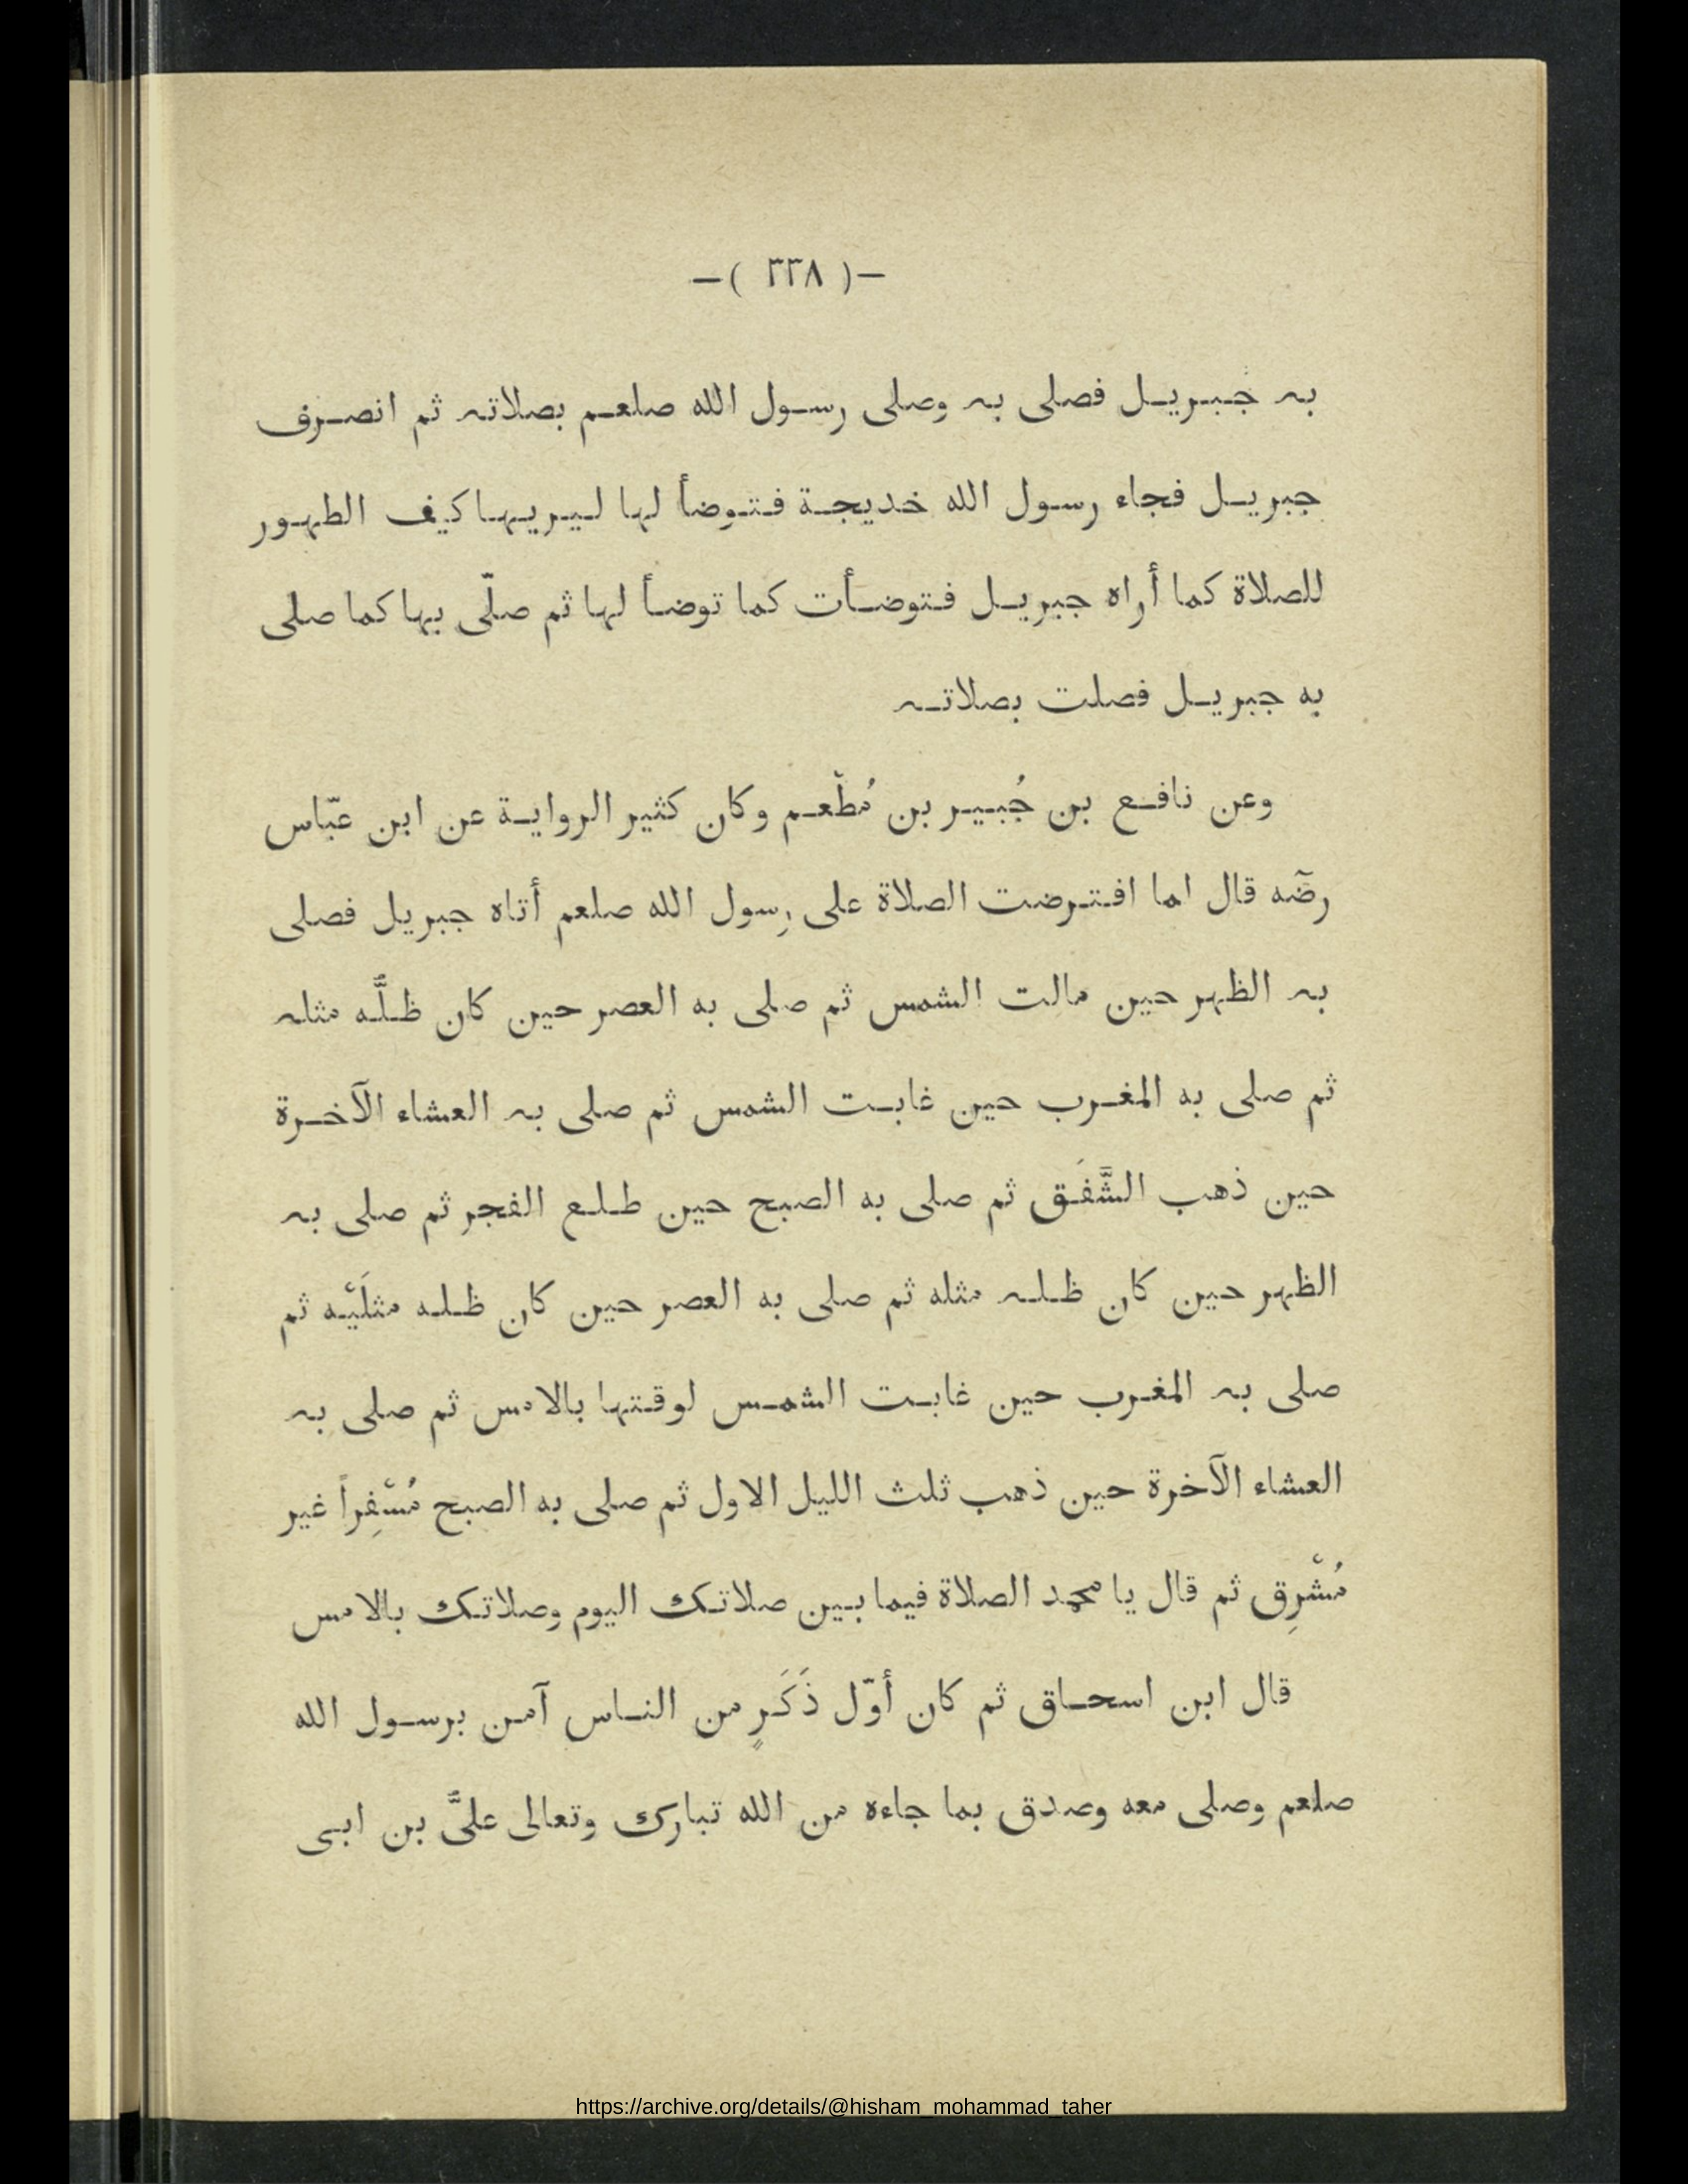 —( ٣٣٨ )—
به جبريل فصلى به وصلى رسول الله صلعم بصلاته ثم انصرف
جبريل فجاء رسول الله خديجة فتوضأ لها ليريها كيف الطهور
للصلاة كما أراه جبريل فتوضأت كما توضأ لها ثم صلّى بها كما صلى
به جبريل فصلت بصلاته
وعن نافع بن جُبير بن مُطْعم وكان كثير الرواية عن ابن عبّاس
رضّه قال لما افترضت الصلاة على رسول الله صلعم أتاه جبريل فصلى
به الظهر حين مالت الشمس ثم صلى به العصر حين كان ظلَّه مثله
ثم صلى به المغرب حين غابت الشمس ثم صلى به العشاء الآخرة
حين ذهب الشَّفَق ثم صلى به الصبح حين طلع الفجر ثم صلى به
الظهر حين كان ظله مثله ثم صلى به العصر حين كان ظله مثلَيْه ثم
صلى به المغرب حين غابت الشمس لوقتها بالامس ثم صلى به
العشاء الآخرة حين ذهب ثلث الليل الاول ثم صلى به الصبح مُسْفِراً غير
مُشْرِق ثم قال يا محمد الصلاة فيما بين صلاتك اليوم وصلاتك بالامس
قال ابن اسحاق ثم كان أوّل ذَكَرٍ من الناس آمن برسول الله
صلعم وصلى معه وصدق بما جاءه من الله تبارك وتعالى علىَّ بن ابى
https://archive.org/details/@hisham_mohammad_taher